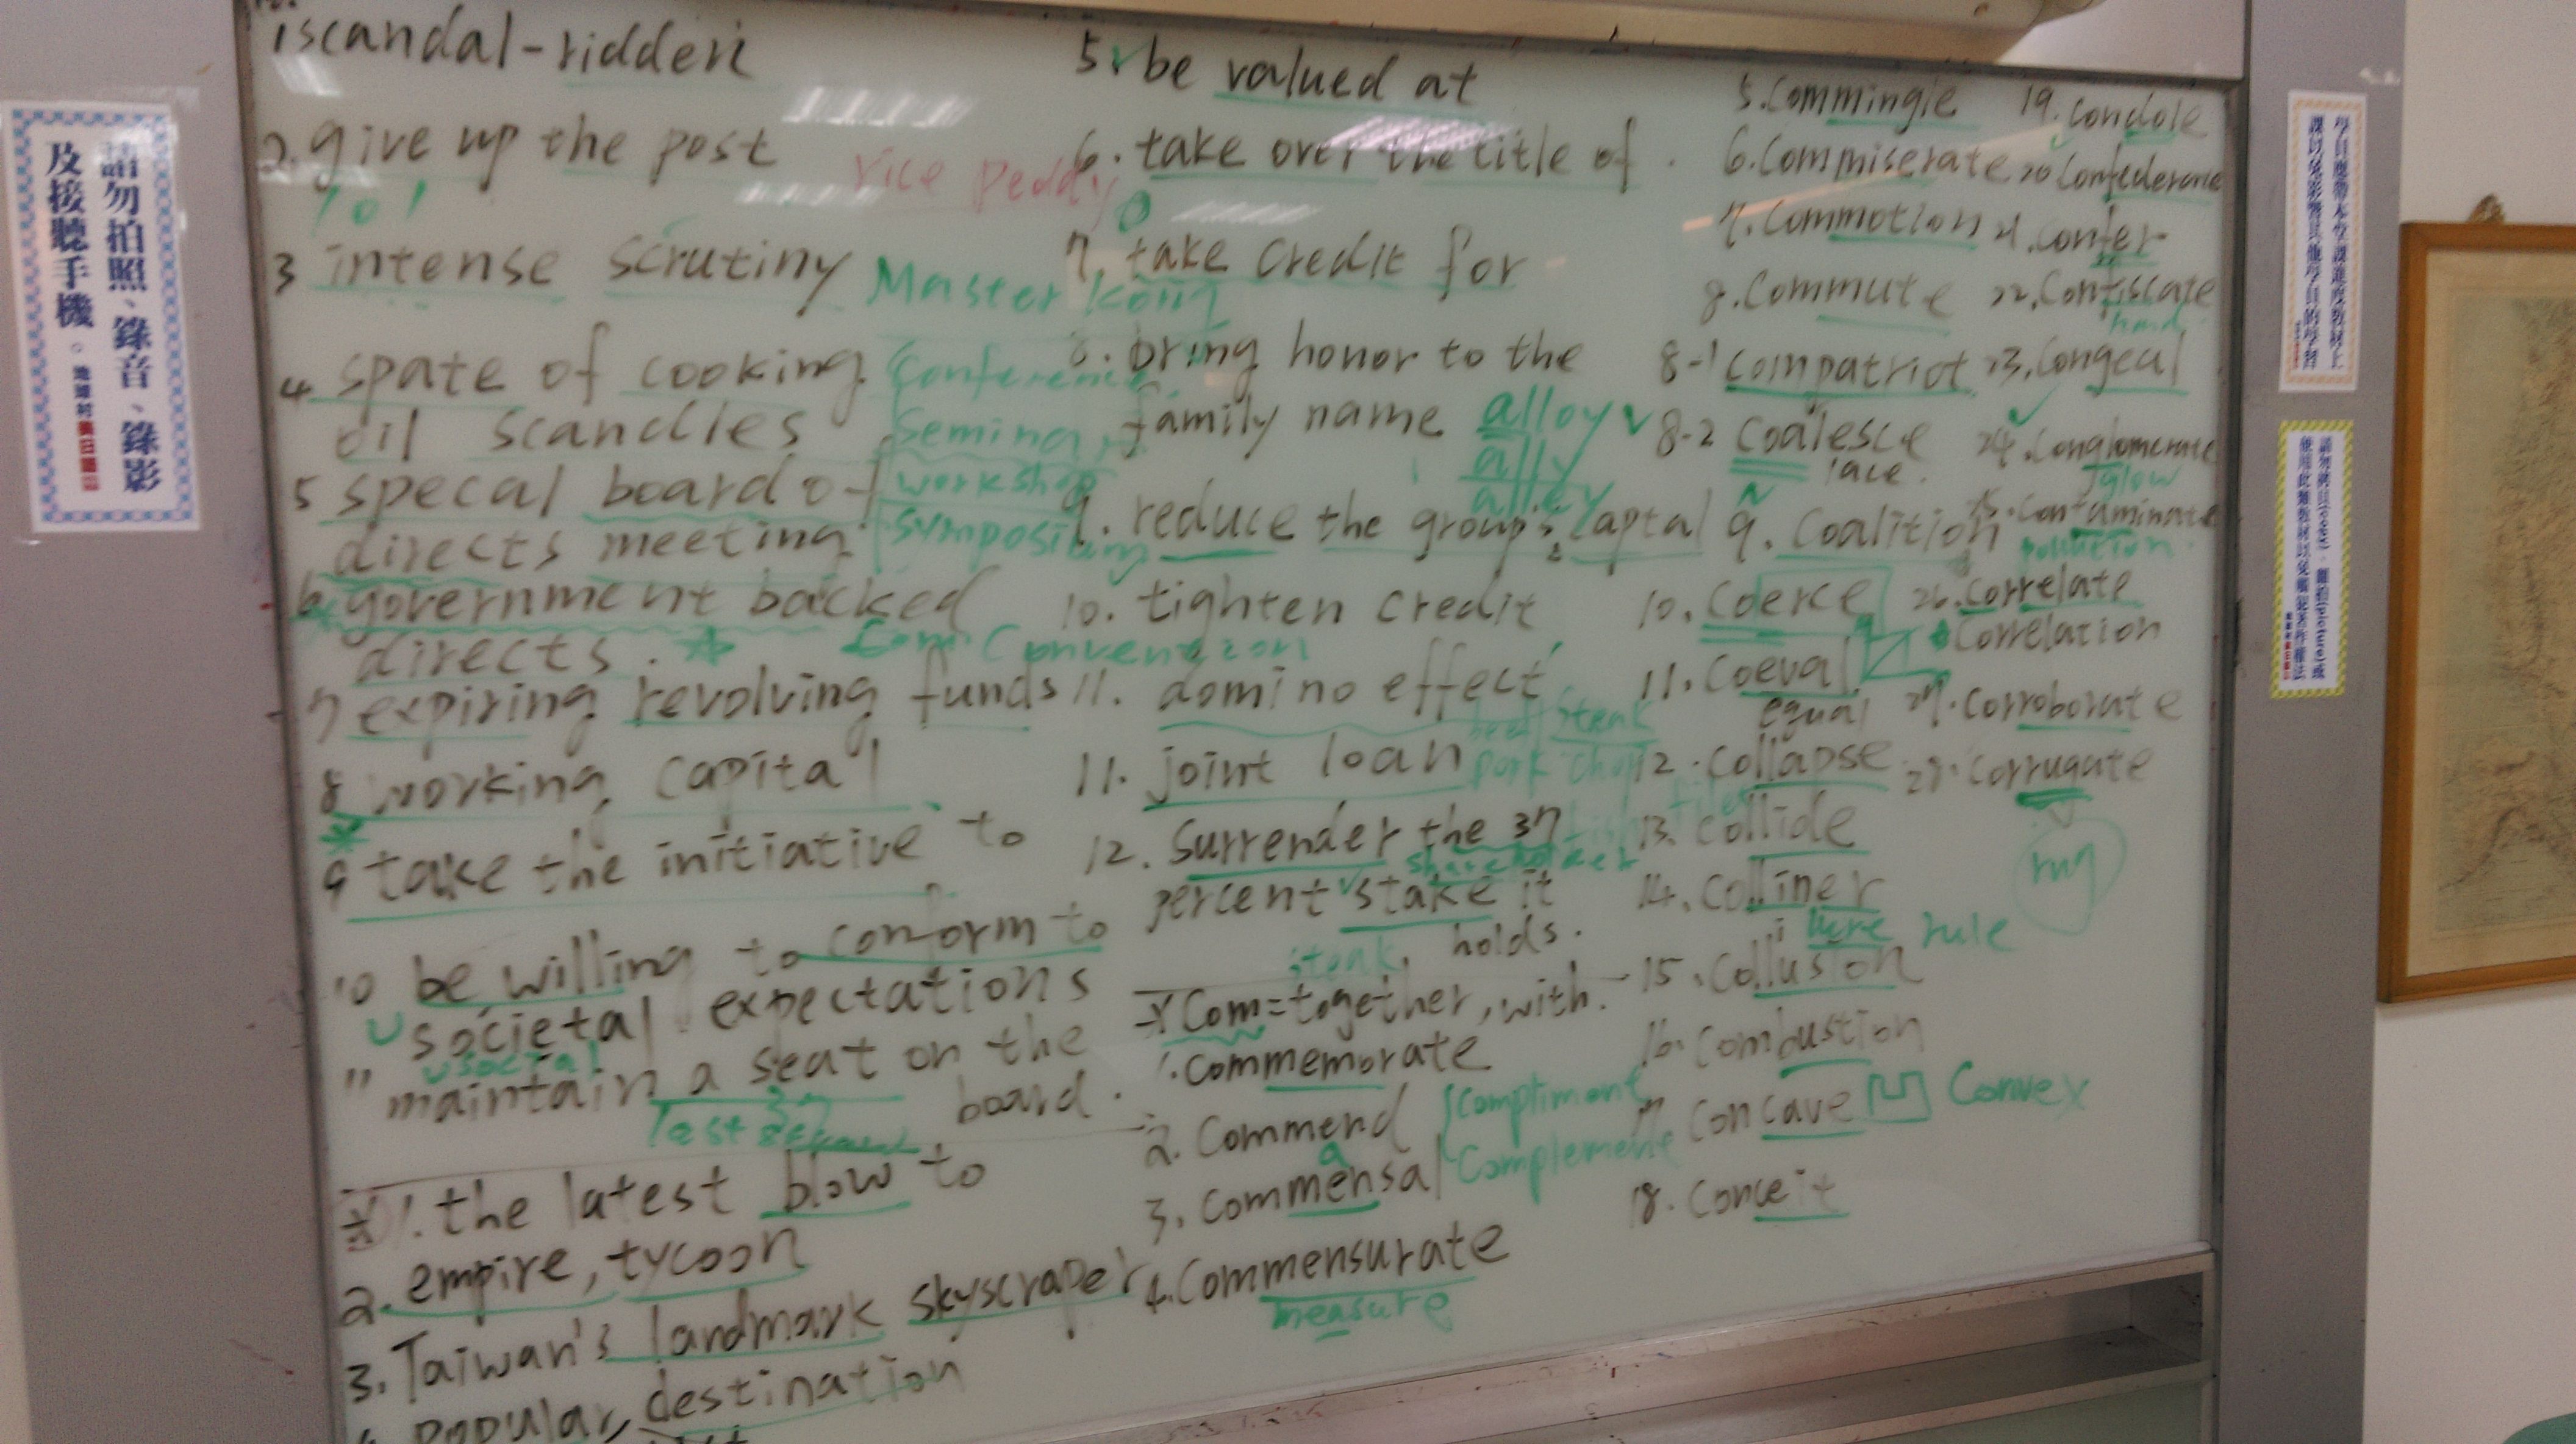 請勿拍照、錄音、錄影
及接聽手機。
1 scandal-ridden
2. give up the post
101
3 intense scrutiny
4 spate of cooking
oil scandles
5 specal board of
directs meeting
6 government backed
directs.
7 expiring revolving funds
8 working capital
9 take the initiative to
10 be willing to conform to
societal expectations
social
11 maintain a seat on the
board.
1. the latest blow to
2. empire, tycoon
3. Taiwan's landmark skyscraper
popular destination
rice peddy
Master Kong
Conference
Seminar
workshop
symposium
Com Convention
5. be valued at
6. take over the title of.
7. take credit for
8. bring honor to the
family name
alloy
ally
alley
9. reduce the group's captal
10. tighten credit
11. domino effect
steak
pork chop
11. joint loan
12. Surrender the 37
shareholder
percent stake it
holds.
steak
* Com = together, with.
1. commemorate
2. Commend
compliment
Complement
3. Commensal
4. Commensurate
measure
5. Commingle
6. Commiserate
7. Commotion
8. Commute
8-1 Compatriot
8-2 Coalesce
9. Coalition
10. Coerce
11. Coeval
equal
12. Collapse
13. Collide
14. Colliner
rule
15. Collusion
16. Combustion
17 Concave Convex
18. Conceit
19. Condole
20 Confederane
21. Confer
22. Confiscate
23. Congeal
24. Conglomerate
glow
25. Contaminate
pollution.
26. Correlate
Correlation
27. Corroborate
28. Corrugate
rug